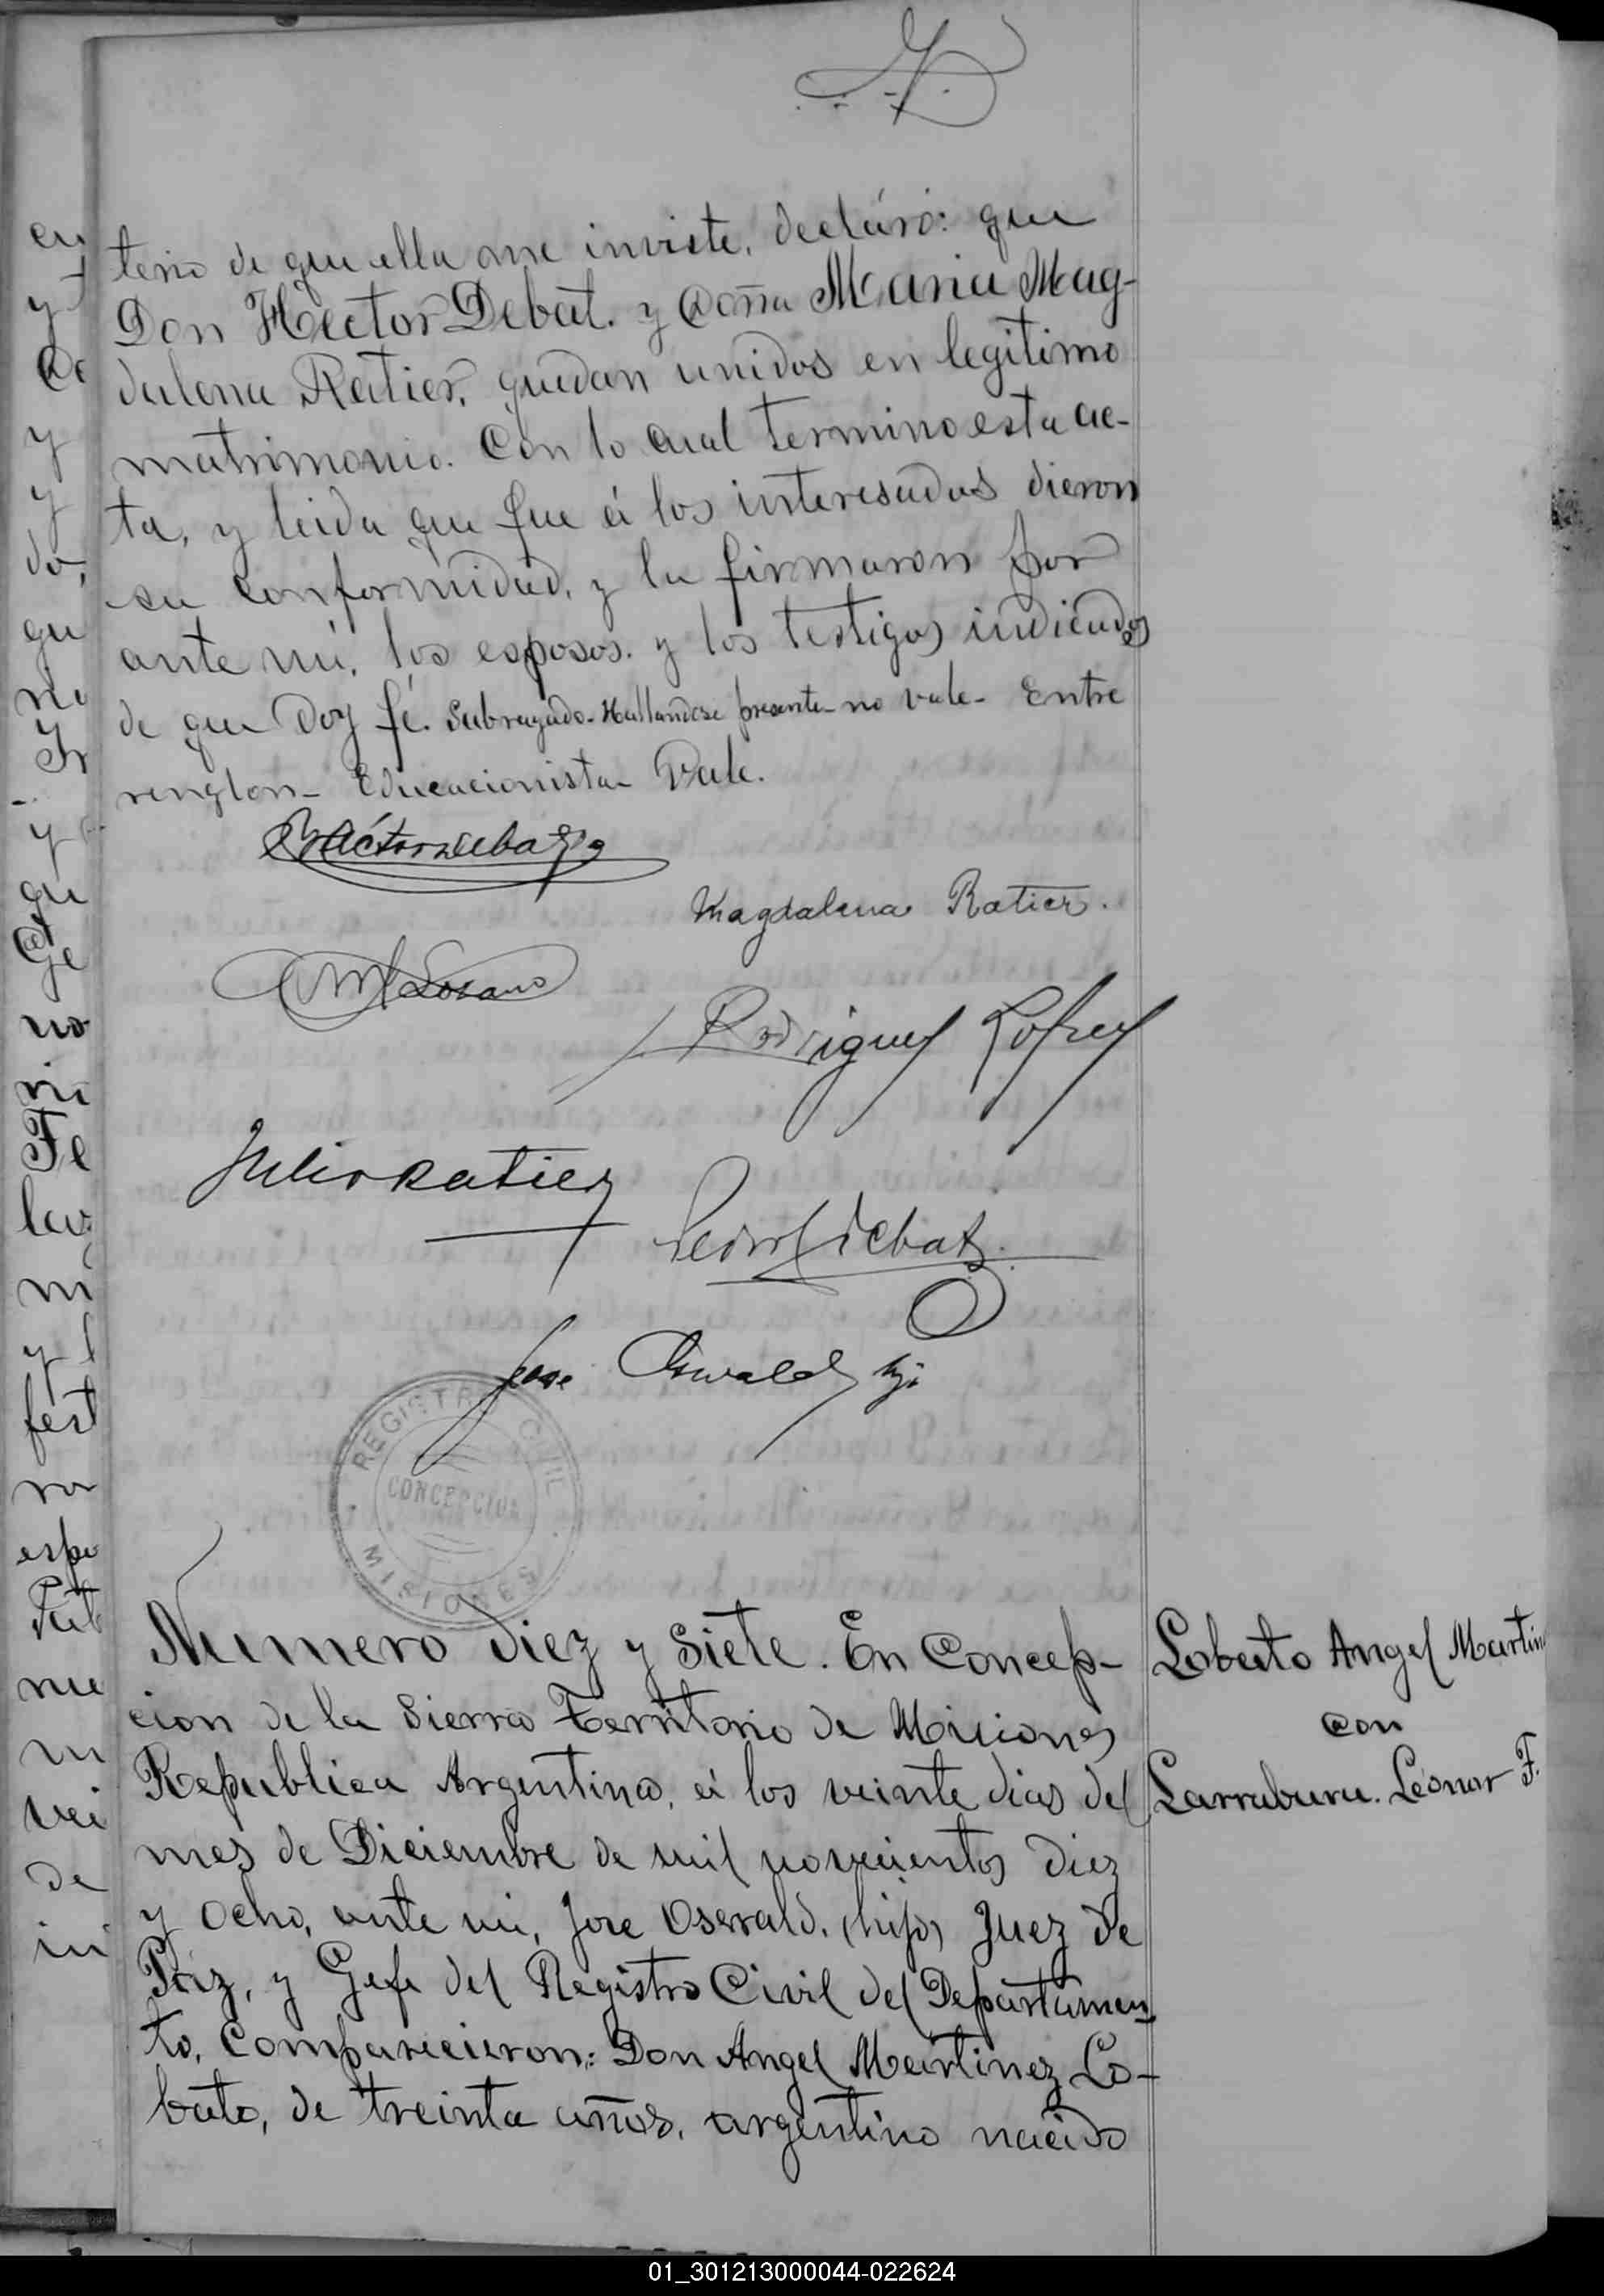 terio de que ella me inviste, declaro: que
Don Hector Debat. y Doña Maria Mag-
dalena Ratier, quedan unidos en legitimo
matrimonio. Con lo cual termino esta ac-
ta, y leida que fue á los interesados dieron
su conformidad, y la firmaron por
ante mi, los esposos. y los testigos indicados
de que Doy fé. Subrayado-Hallandose presente-no vale- Entre
renglon- Educacionista- Vale.
Magdalena Ratier.
M Lozano
Rodriguez
Julio Ratier
Pedro Debat
Jose Oswald hijo
REGISTRO CIVIL
CONCEPCION
MISIONES
Numero Diez y Siete. En Concep-
cion de la Sierra Territorio de Misiones
Republica Argentina, á los veinte dias del
mes de Diciembre de mil novecientos diez
y ocho, ante mi, Jose Oswald, (hijo) Juez de
Paz, y Gefe del Registro Civil del Departamen-
to, Comparecieron: Don Angel Martinez Lo-
bato, de treinta años, argentino nacido
Loberto Angel Martin
con
Larraburu. Leonor F.
en
y
y
y
do,
qu
no
y
y
qu
Ge
no
vi
Fe
m
y
fest
ra
espo
nu
m
vei
de
in
01_301213000044-022624